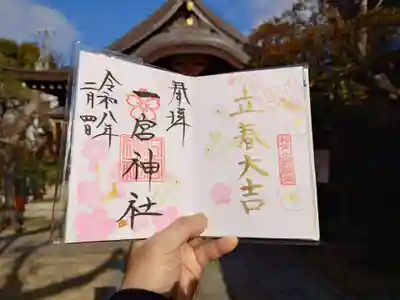 立春大吉
奉拝
二宮神社
令和八年
二月四日